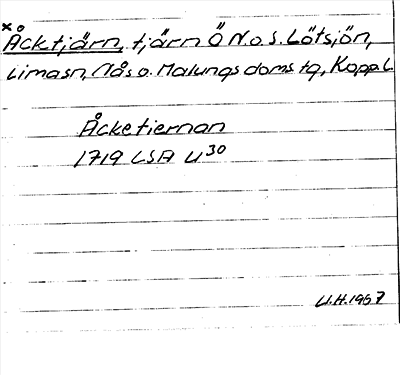 x Åcktjärn, tjärn Ö N.o.S. Lötsjön,
Limasn, Nås o. Malungs doms tg, Kopp.L
Åcketiernan
1719 LSA U30
U.H. 1967